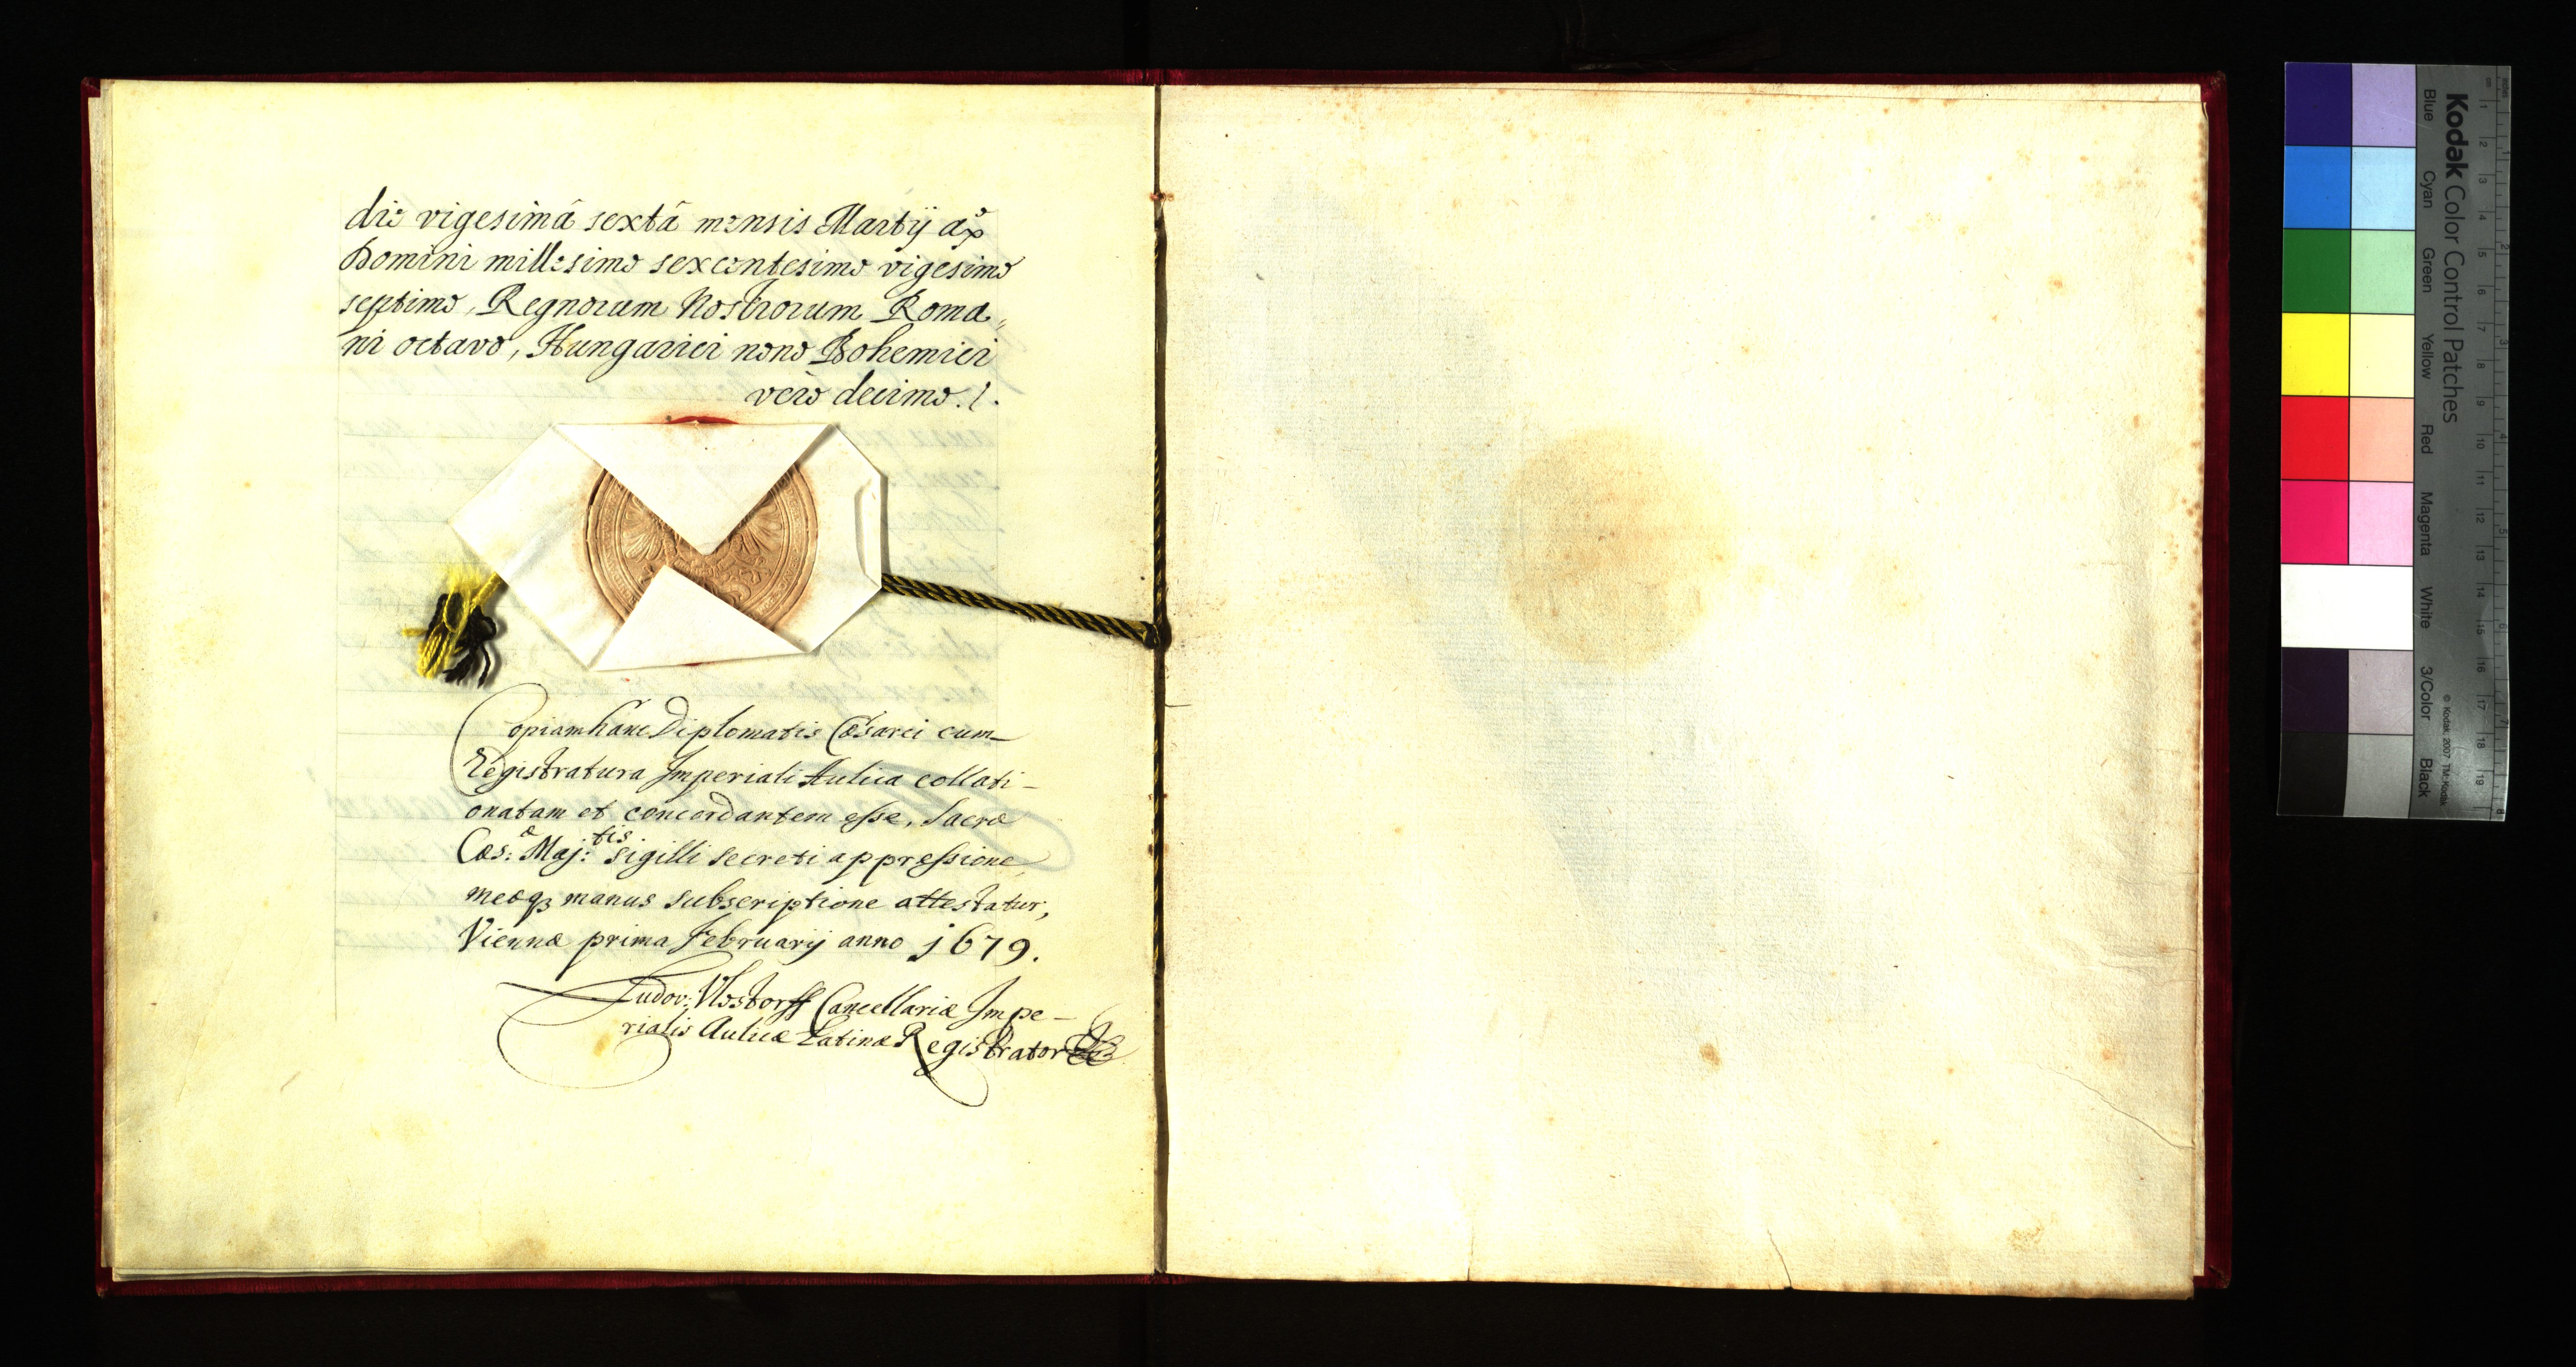 die vigesimâ sextâ mensis Martij aō
Domini millesimo sexcentesimo vigesimo
septimo, Regnorum Nostrorum Roma„
ni octavo, Hungarici nono Bohemici
verò decimo.
Copiam hanc Diplomatis Cæsarei cum
Registratura Imperiali Aulica collati-
onatam et concordantem esse, Sacræ
Cæs: Maj:tis sigilli secreti appressione,
meaq3 manus subscriptione attestatur,
Viennæ prima Februarij anno 1679.
Cancellariæ Impe-
rialis Aulicæ Latinæ Registrator
Kodak Color Control Patches
Blue Cyan Green Yellow Red Magenta White 3/Color Black
© Kodak, 2007 TM: Kodak
inches 1 2 3 4 5 6 7 8
cm 1 2 3 4 5 6 7 8 9 10 11 12 13 14 15 16 17 18 19